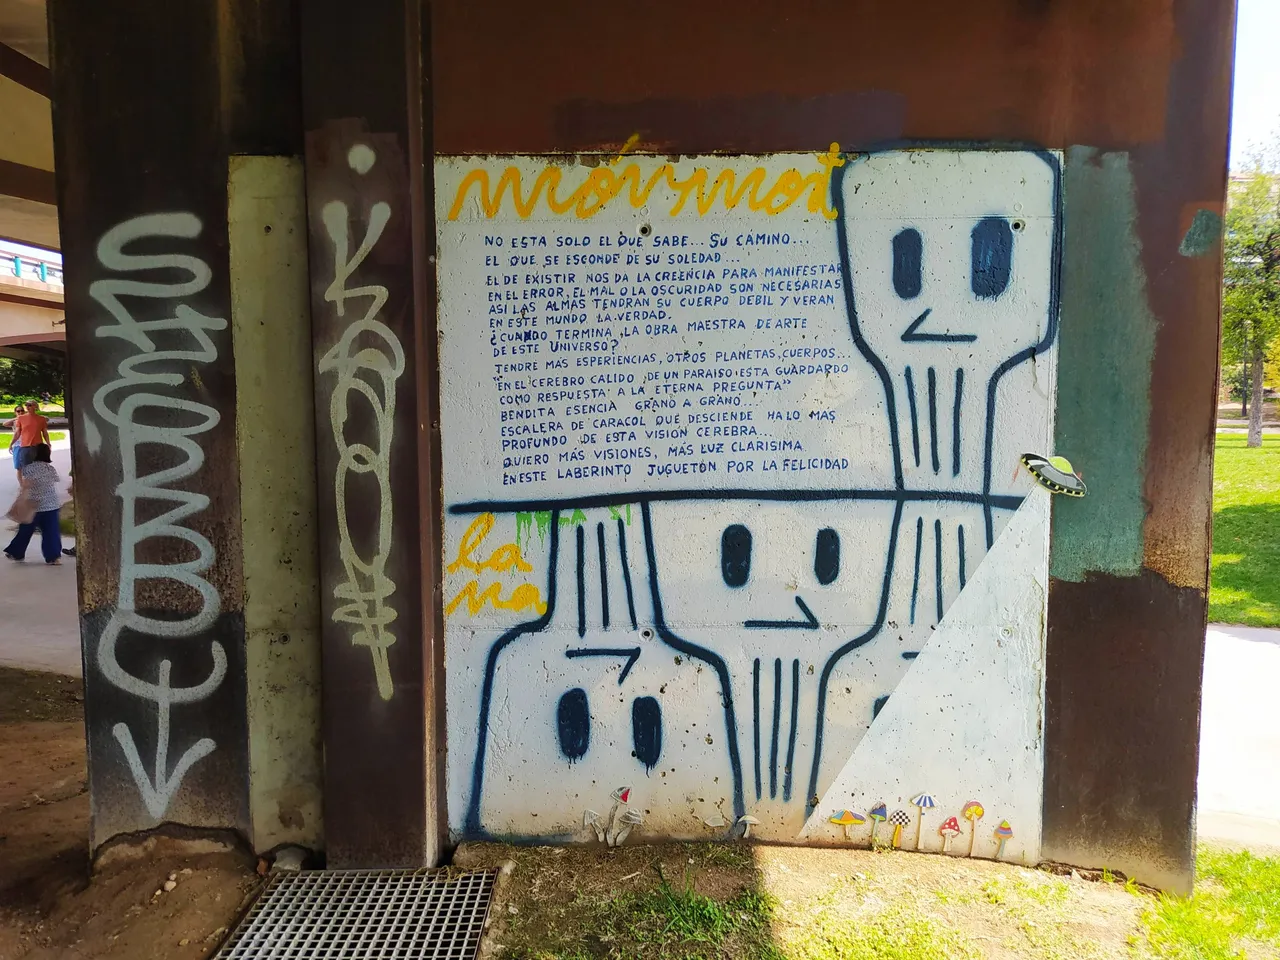 NO ESTA SOLO EL QUE SABE... SU CAMINO...
EL QUE SE ESCONDE DE SU SOLEDAD...
EL DE EXISTIR NOS DA LA CREENCIA PARA MANIFESTAR
EN EL ERROR, EL MAL O LA OSCURIDAD SON NECESARIAS
ASI LAS ALMAS TENDRAN SU CUERPO DEBIL Y VERAN
EN ESTE MUNDO LA VERDAD.
¿CUANDO TERMINA LA OBRA MAESTRA DE ARTE
DE ESTE UNIVERSO?
TENDRE MAS EXPERIENCIAS, OTROS PLANETAS, CUERPOS...
EN EL CEREBRO CALIDO DE UN PARAISO ESTA GUARDARDO
COMO RESPUESTA A LA ETERNA PREGUNTA"
BENDITA ESENCIA GRANO A GRANO...
ESCALERA DE CARACOL QUE DESCIENDE HA LO MAS
PROFUNDO DE ESTA VISIÓN CEREBRA...
QUIERO MÁS VISIONES, MÁS LUZ CLARISIMA
EN ESTE LABERINTO JUGUETÓN POR LA FELICIDAD
la